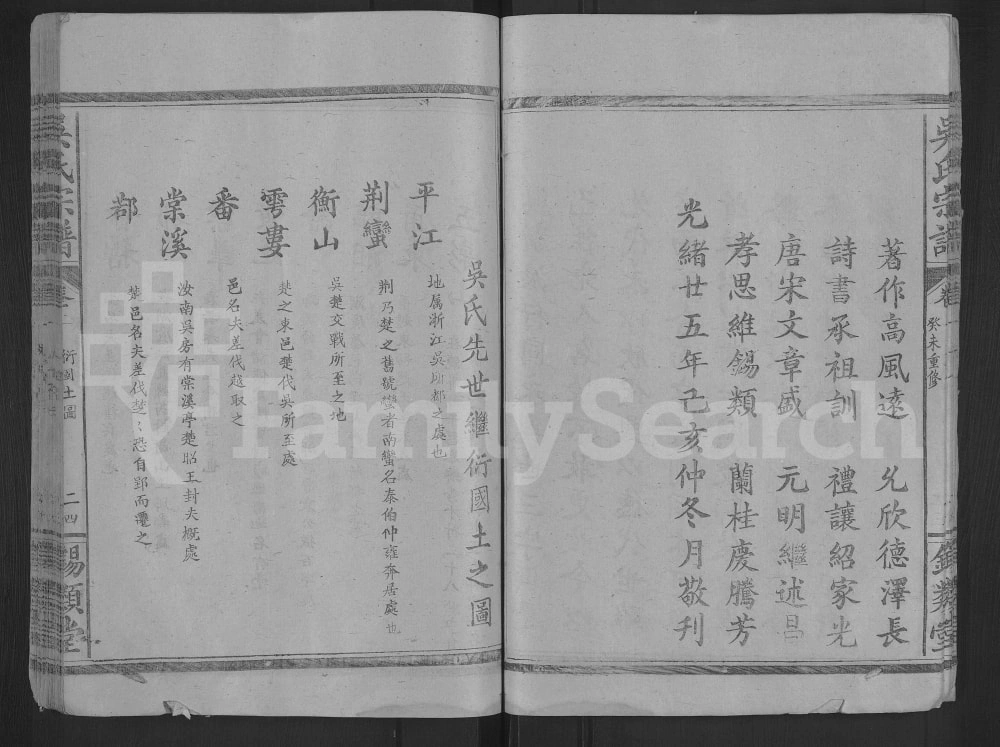 吳氏宗譜
卷一
癸未重修
錫類堂
著作高風遠　允欣德澤長
詩書承祖訓　禮讓紹家光
唐宋文章盛　元明繼述昌
孝思維錫類　蘭桂慶騰芳
光緒廿五年己亥仲冬月敬刊
吳氏先世繼衍國土之圖
平江　地属浙江吳所都之處也
荆蠻　荆乃楚之舊號蠻者南蠻名泰伯仲雍奔居處也
衡山　吳楚交戰所至之地
雩婁　楚之東邑楚伐吳所至處
番　邑名夫差伐越取之
棠溪　汝南吳房有棠溪亭楚昭王封夫概處
鄀　楚邑名夫差伐楚〻恐自郢而遷之
吳氏宗譜
卷一
衍國土圖
二四
錫類堂
FamilySearch